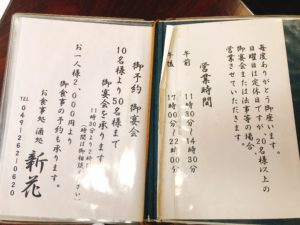 毎度ありがとう御座います。
日曜日は定休日ですが、20名様以上の
御宴会または法事等の場合、
営業させていただきます。
営業時間
午前 11時30分〜14時30分
午後 17時00分〜22時00分
御予約 御宴会
10名様より50名様まで
御宴会を承ります。
お一人様2,000円より
御食事の予約も承ります。
お食事処 酒処 新花
TEL 049-262-0620